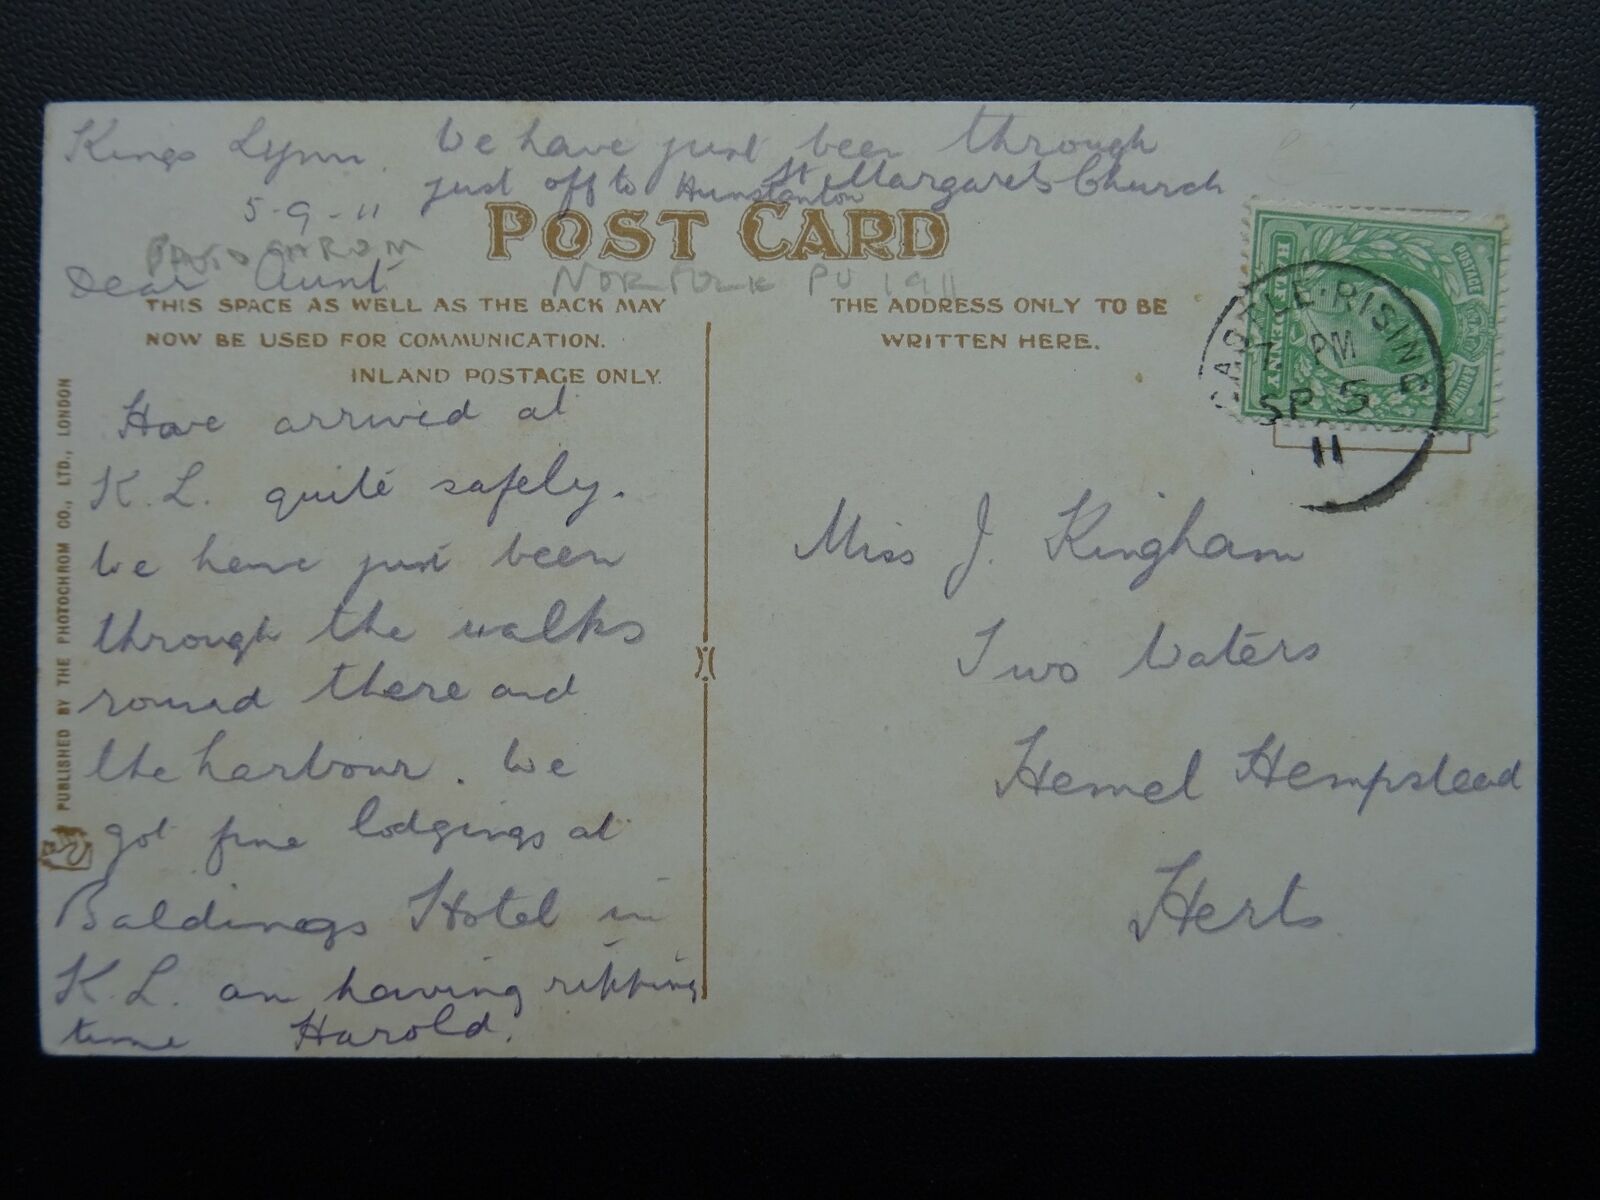 Kings Lynn. We have just been through
St Margarets Church
just off to Hunstanton
5-9-11
POST CARD
Dear Aunt
NORFOLK PU 1911
THIS SPACE AS WELL AS THE BACK MAY
NOW BE USED FOR COMMUNICATION.
INLAND POSTAGE ONLY.
THE ADDRESS ONLY TO BE
WRITTEN HERE.
Have arrived at
K.L. quite safely.
We have just been
through the walks
round there and
the harbour. We
got fine lodgings at
Baldings Hotel in
K.L. am having ripping
time Harold.
PUBLISHED BY THE PHOTOCHROM CO., LTD., LONDON
POSTAGE
CASTLE·RISING
7 PM
SP 5
11
Miss J. Kingham
Two Waters
Hemel Hempstead
Herts.